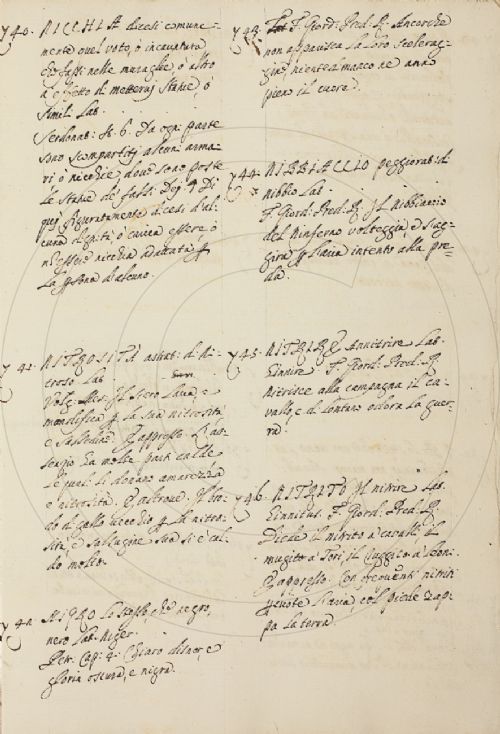 740. NICCHIA dicesi comune-
mente quel voto, o incavatura
che fassi nelle muraglie o altro
a effetto di mettervi Statue o
simili Lat.
Serdonat: St. 6. Da ogni parte
sono scompartiti alcuni arma-
ri o nicchie, dove sono poste
Le Statue de' falsi Dei. Di
qui figuratamente dicesi d'al-
cuna dignità, o carica essere o
n'essere nicchia adattata
La persona d'alcuno.
741. NITROSITÀ astrat: di Ni-
troso Lat.
Volg: Mes: Il siero lava e
mondifica per la sua nitrosità
e salsedine. E appresso. L'as-
senzio ha molte parti calde
le quali li donano amarezza
e nitrosità. E altrove. Il bro-
do di gallo vecchio per la nitro-
sità, e salsugine sua si è cal-
do molto.
742. NIGRO Lo stesso, che negro,
nero Lat. Niger.
Petr. Cap: 4. Chiaro disnor, e
gloria oscura, e nigra.
743. F. Giord: Pred: R: Ancorchè
non apparisca la loro scelerag-
gine, niente di manco ne anno
pieno il cuore.
744. NIBBIACCIO peggiorat: di
Nibbio Lat.
F. Giord: Pred: R: Il Nibbiaccio
del Ninferno volteggia, e s'ag-
gira per l'aria intento alla pre-
da.
745. NITRIRE Annitrire Lat.
Hinnire F. Giord: Pred: R.
Nitrisce alla campagna il ca-
vallo, e di lontano odora la guer-
ra.
746. NITRITO Il nitrire Lat.
Hinnitus. F. Giord: Pred: R:
Diede il nitrito a' cavalli, il
mugito a' Tori, il ruggito a' Leoni.
E appresso. Con frequenti nitriti
percuote l'aria, e col piede zap-
pa la terra.